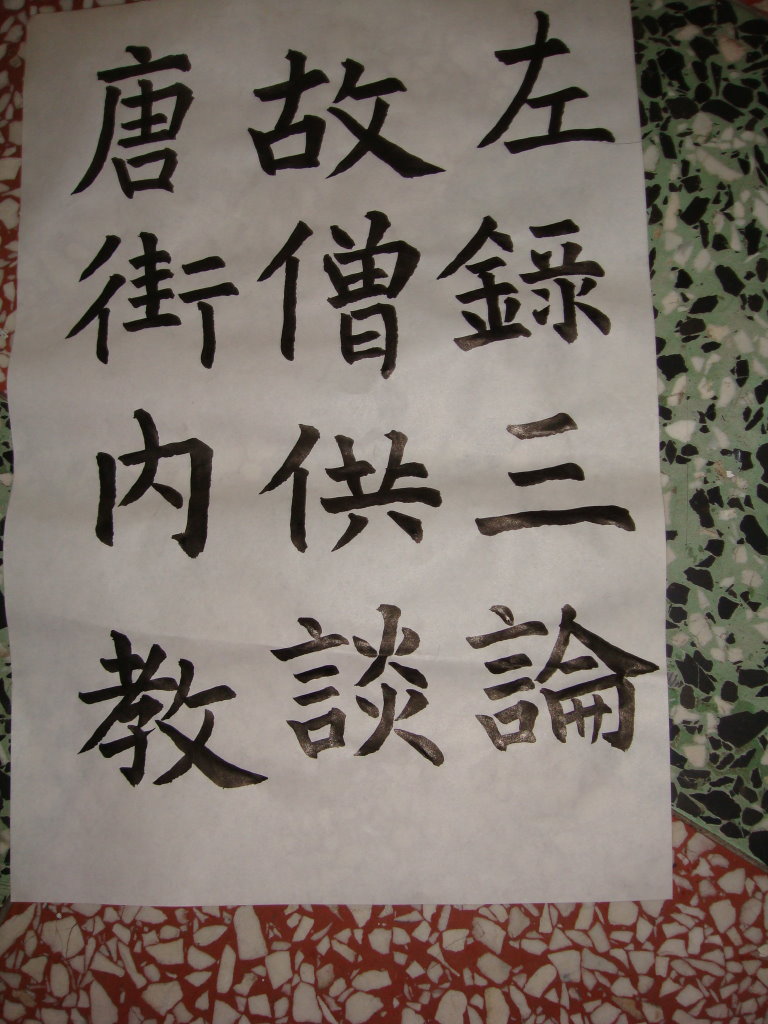 唐故左
街僧錄
内供三
教談論